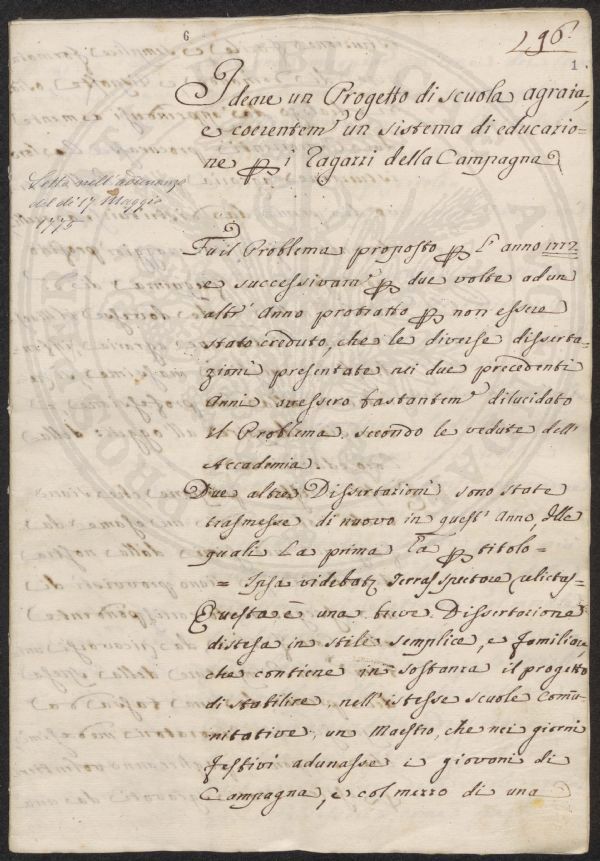 6
196.
1
Ideare un Progetto di scuola agraria,
e coerentem.e un sistema di educazio=
ne per i Ragazzi della Campagna
Letta nell'adunanza
del dì 17 Maggio
1775
Fù il Problema proposto per l'anno 1772
e successivam.e per due volte ad un
altr'Anno protratto per non essere
stato creduto, che le diverse disserta=
zioni presentate nei due precedenti
Anni avessero bastantem.e dilucidato
il Problema, secondo le vedute dell'
Accademia.
Due altre Dissertazioni sono state
trasmesse di nuovo in quest'Anno, delle
quali La prima à per titolo =
= Ipsa videbat.r Terras spectare relictas=
Questa è una breve Dissertazione
distesa in stile semplice, e familiare
che contiene in sostanza il progetto
di stabilire nell'istesse scuole Comu=
nitative un Maestro, che nei giorni
Festivi adunasse i giovani di
Campagna, e col mezzo di una